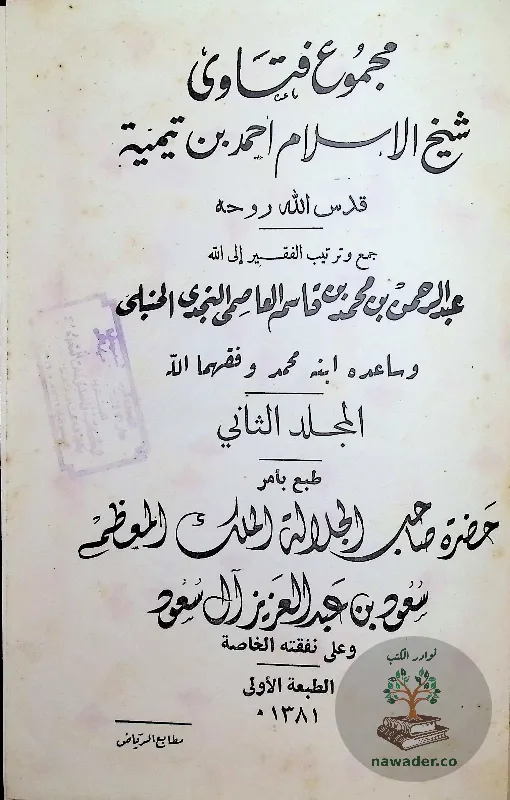 مجموع فتاوى
شيخ الإسلام احمد بن تيمية
قدس الله روحه
جمع وترتيب الفقير إلى الله
عبد الرحمن بن محمد بن قاسم العاصمي النجدي الحنبلي
وساعده ابنه محمد وفقهما الله
المجلد الثاني
طبع بأمر
حضرة صاحب الجلالة الملك المعظم
سعود بن عبد العزيز آل سعود
وعلى نفقته الخاصة
الطبعة الأولى
١٣٨١ ه
مطابع الرياض
نوادر الكتب
nawader.co